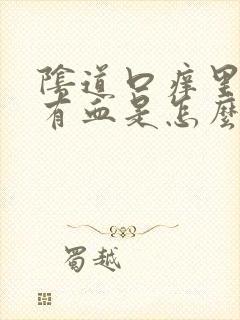 陰道口痒里
有血是怎麼
蜀越